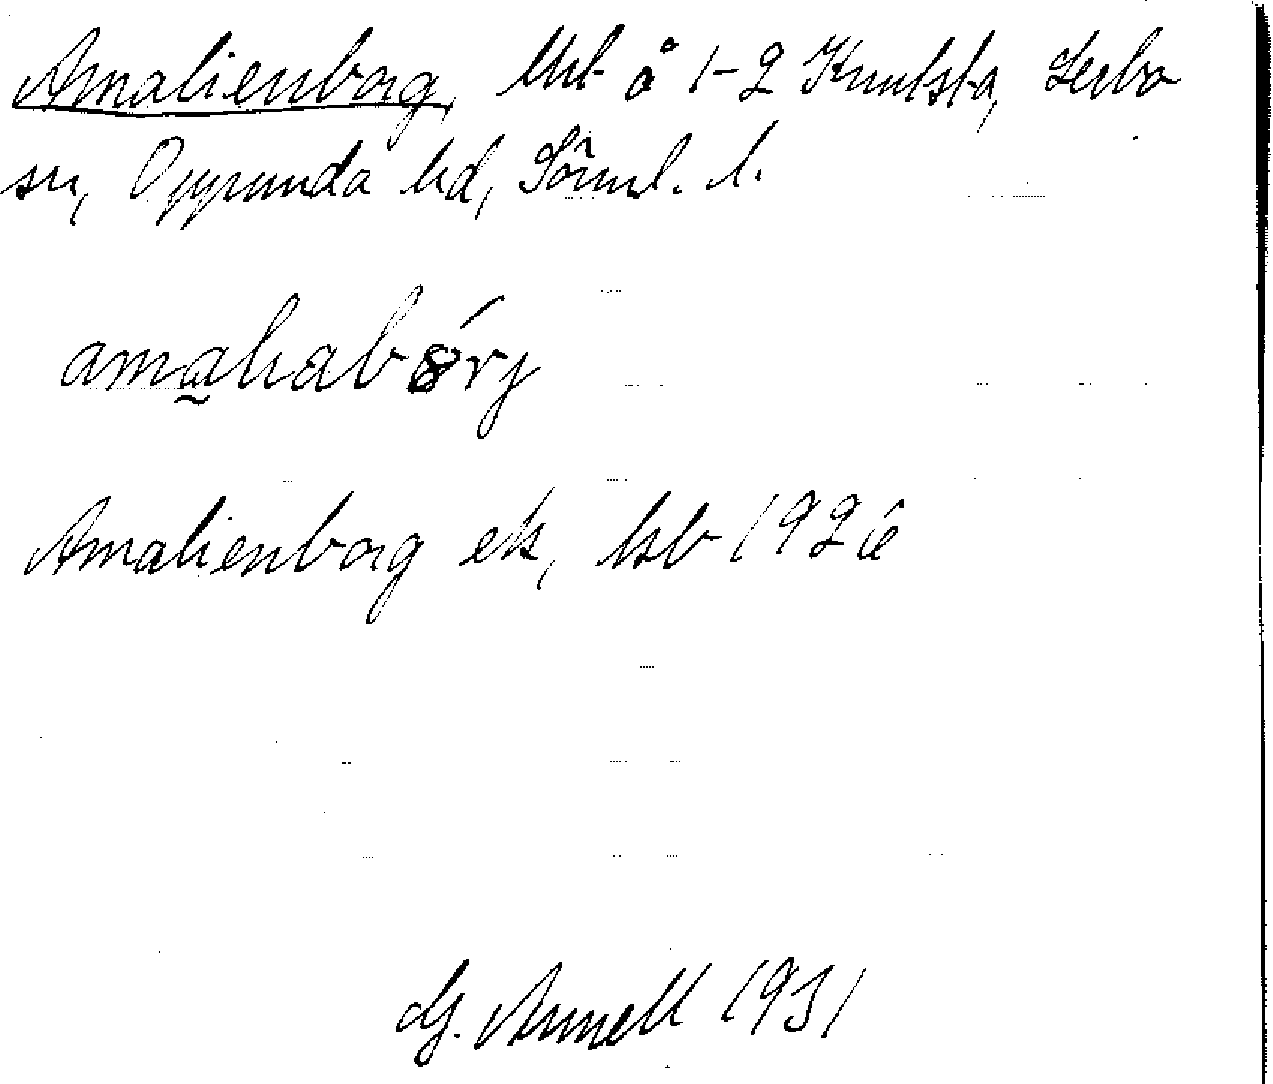 Amalienborg, lht å 1-2 Knutsta, Lerbo
sn, Oppunda hd, Söml. l.
amaliabórj
Amalienborg ek, ksb 1926
G. Annell 1931